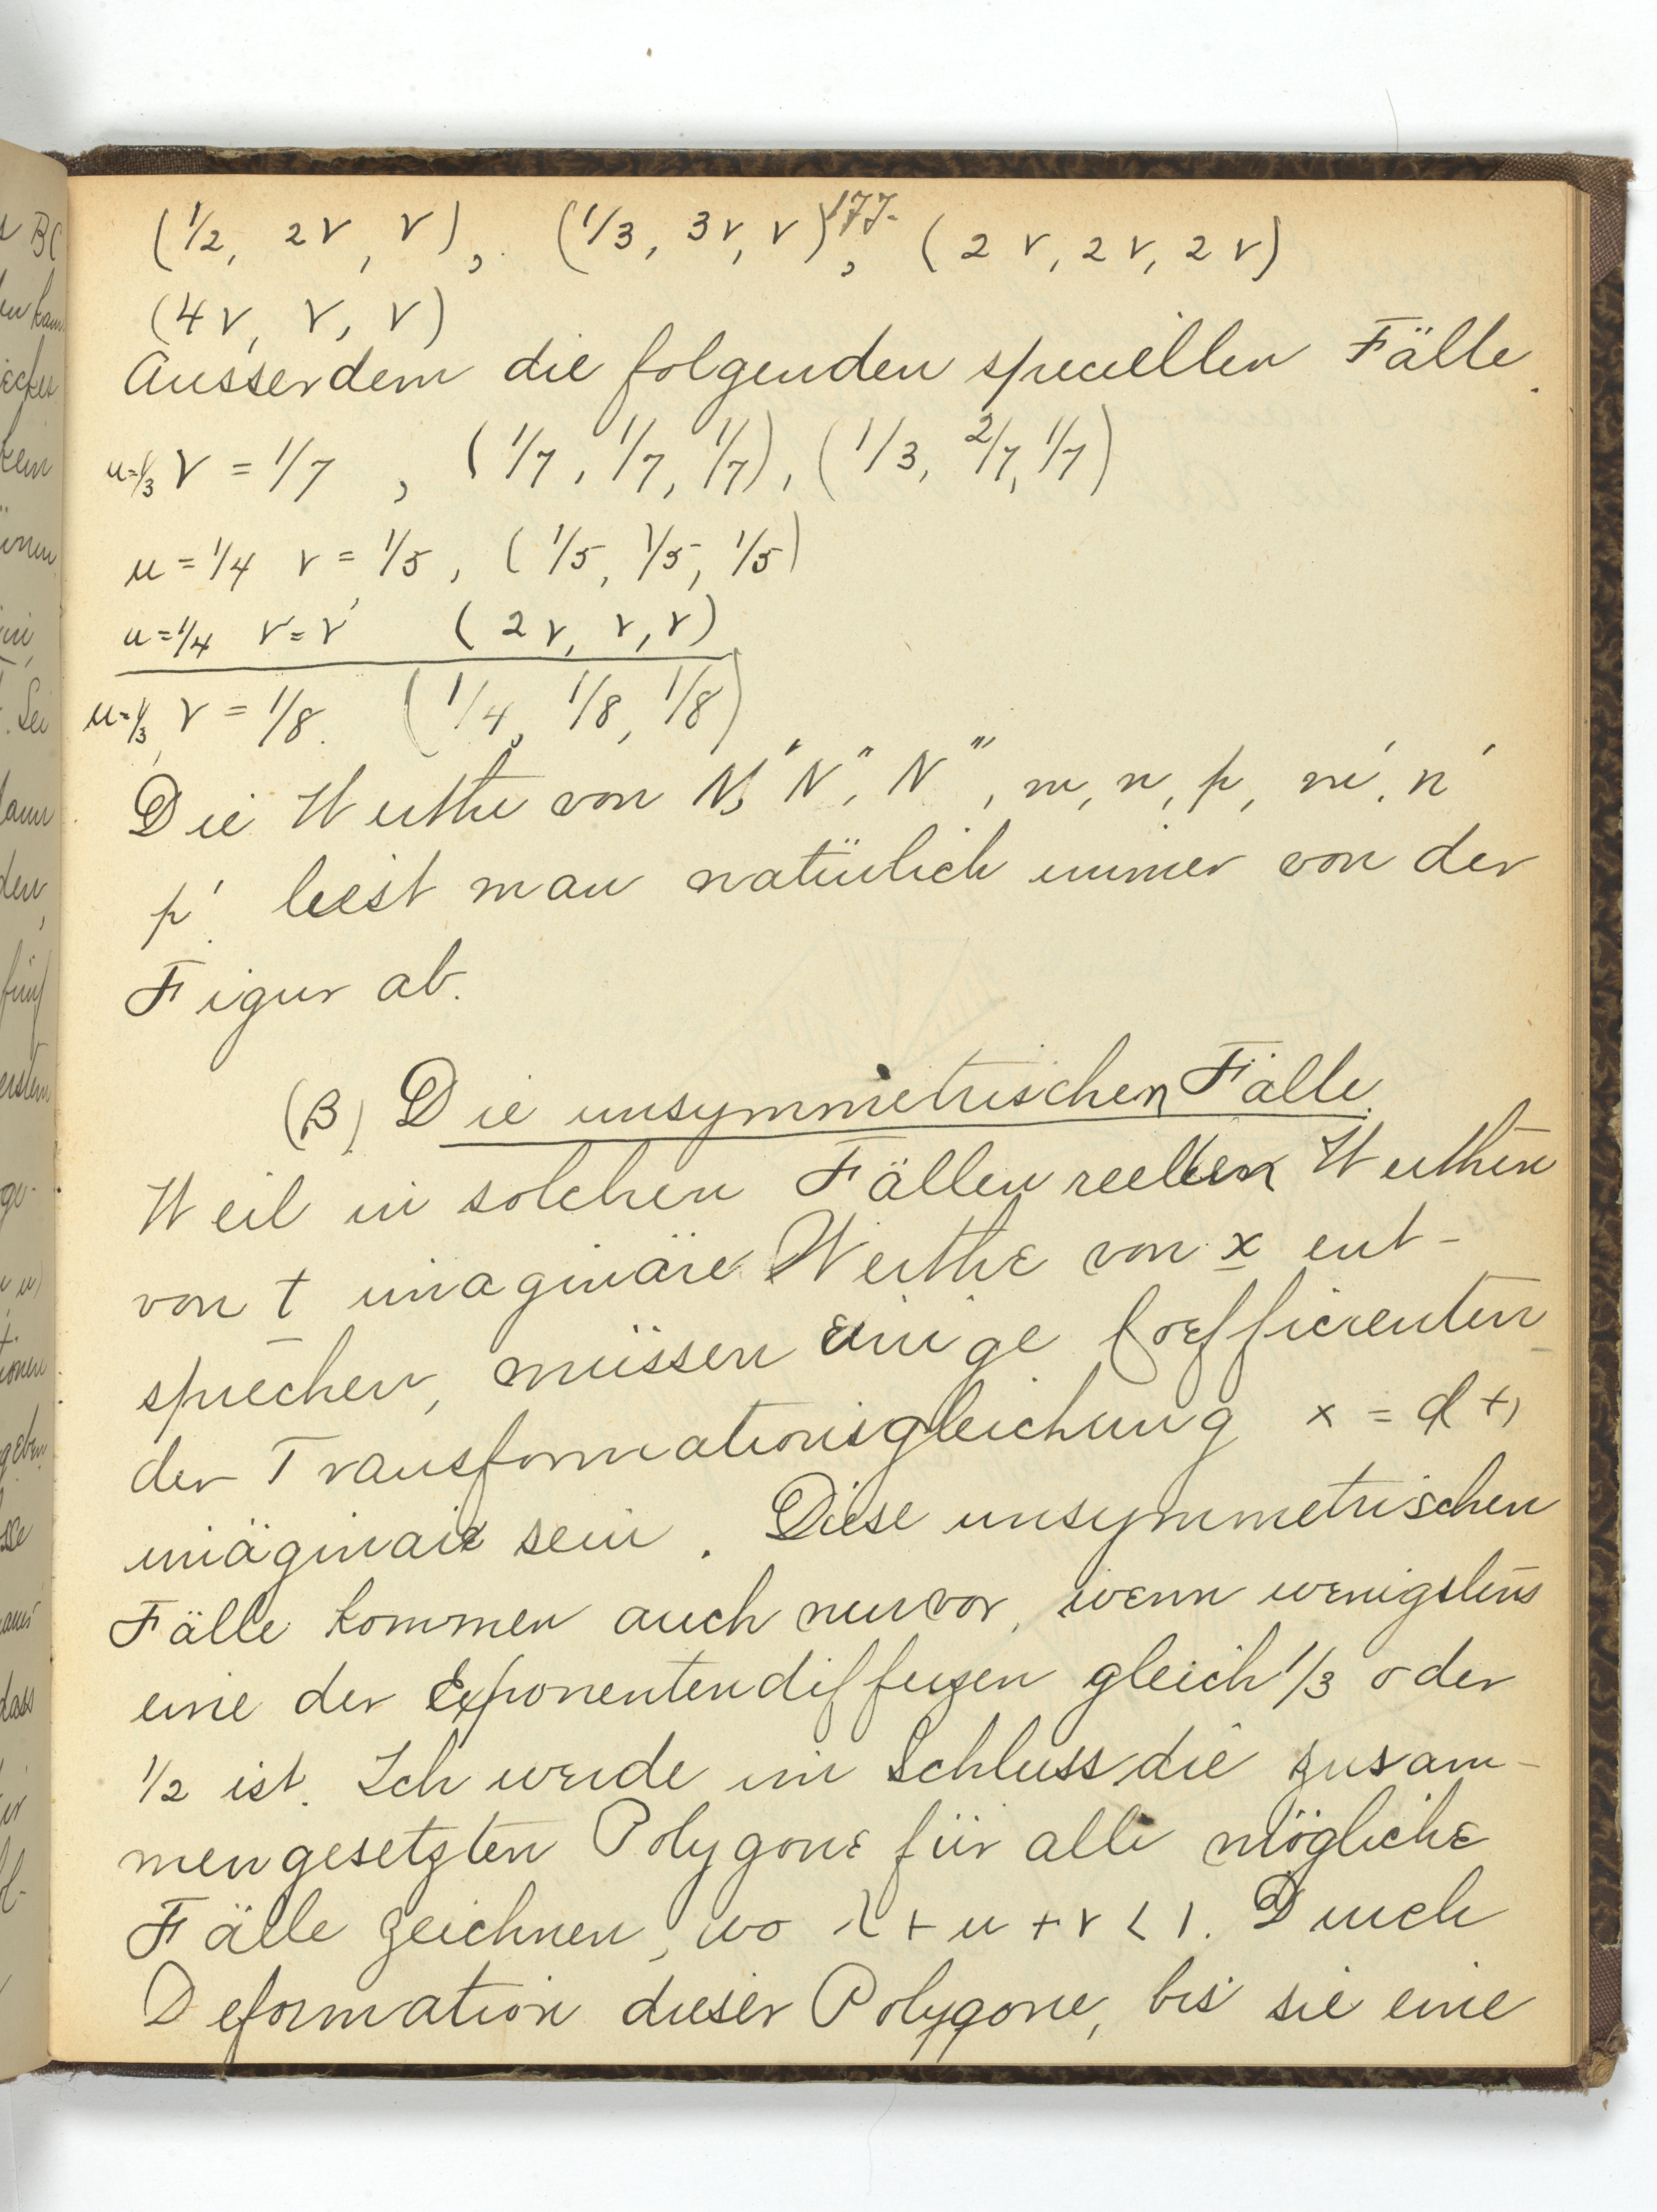 177.
(1/2, 2ν, ν), (1/3, 3ν, ν), (2ν, 2ν, 2ν)
(4ν, ν, ν)
Ausserdem die folgenden speciellen Fälle.
μ=1/3 ν = 1/7, (1/7, 1/7, 1/7), (1/3, 2/7, 1/7)
μ = 1/4 ν = 1/5, (1/5, 1/5, 1/5)
μ = 1/4 ν = ν (2ν, ν, ν)
μ=1/3, ν = 1/8. (1/4, 1/8, 1/8)
Die Werthe von N', N'', N''', m, n, p, m', n'
p' liest man natürlich immer von der
Figur ab.
(β) Die unsymmetrischen Fälle.
Weil in solchen Fällen reellen Werthen
von t imaginäre Werthe von x ent-
sprechen, müssen einige Coefficienten
der Transformationsgleichung x =
imäginair sein. Diese unsymmetrischen
Fälle kommen auch nur vor, wenn wenigstens
eine der Exponentendifferzen gleich 1/3 oder
1/2 ist. Ich werde im Schluss die zusam-
mengesetzten Polygone für alle mögliche
Fälle zeichnen, wo λ + μ + ν < 1. Durch
Deformation dieser Polygone, bis sie eine